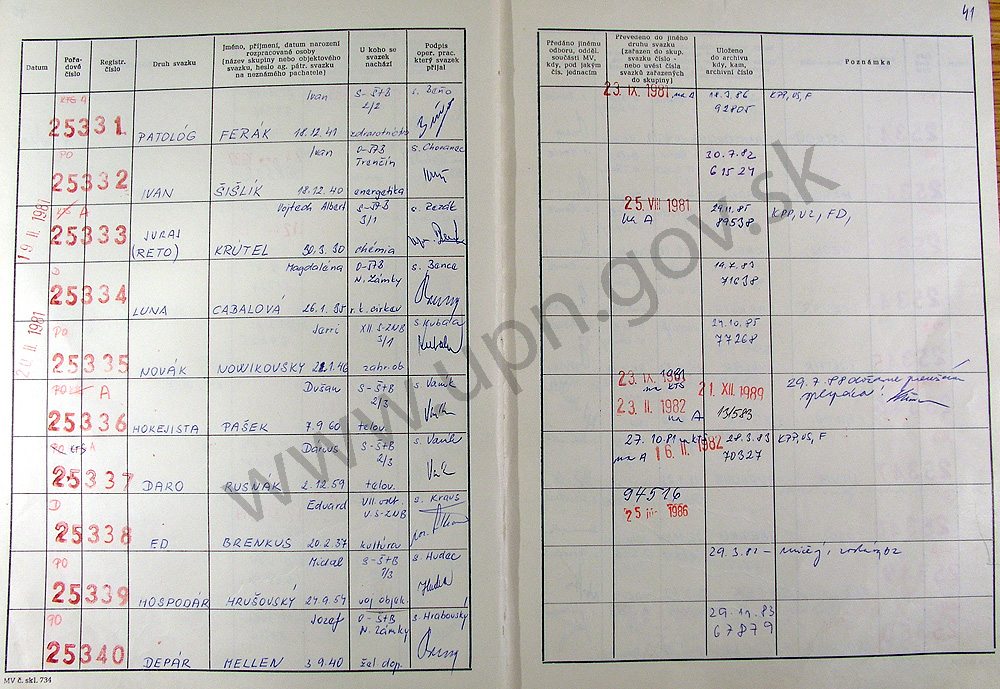 41
Datum
Pořa-
dové
číslo
Registr.
číslo
Druh svazku
Jméno, příjmení, datum narození
rozpracované osoby
(název skupiny nebo objektového
svazku, heslo ag. pátr. svazku
na neznámého pachatele)
U koho se
svazek
nachází
Podpis
oper. prac.
který svazek
přijal
Předáno jinému
odboru, odděl.
součásti MV,
kdy, pod jakým
čís. jednacím
Převedeno do jiného
druhu svazku
(zařazen do skup.
svazku číslo -
nebo uvést čísla
svazků zařazených
do skupiny)
Uloženo
do archivu
kdy,
archivní číslo
Poznámka
KTS A
25331
PATOLÓG
Ivan
FERÁK 18.12.41
S-ŠTB
2/2
zdravotníctvo
s. Beňo
23. IX. 1981 na A
18.3.86
92805
KPP, VS, F
PO
25332
IVAN
Ivan
ŠIŠLÍK 18.12.40
O-ŠTB
Trenčín
energetika
s. Chovanec
30.7.82
61524
19 II 1981
A
25333
JURAJ
(RETO)
Vojtech Albert
KRÚTEL 30.3.30
S-ŠTB
3/1
chémia
25. VIII 1981
na A
29.11.85
89538
KPP, VZ, FD,
25334
LUNA
Magdaléna
CABALOVÁ 26.1.35
O-ŠTB
N. Zámky
r.k. cirkev
s. Banca
19.7.83
71638
20 II 1981
PO
25335
NOVÁK
Jarri
NOWIKOVSKY 22.1.46
XII. S-ZNB
3/1
zahr. ob.
s. Kubala
27.10.85
77268
A
25336
HOKEJISTA
Dušan
PAŠEK 7.9.60
S-ŠTB
2/3
telov.
s. Vanik
23. IX. 1981
na KTS
23. II. 1982
na A
21. XII. 1989
131583
29.7.88
PO KTS A
25337
DARO
Darius
RUSNÁK 2.12.59
S-ŠTB
2/3
telov.
s. Vanik
27.10.81 na KTS
na A 16. II. 1982
28.3.83
70327
KPP, VS, F
D
25338
ED
Eduard
BRENKUS 20.2.37
VII. odb.
V.S-ZNB
kultúra
s. Kraus
94516
25 III 1986
PO
25339
HOSPODÁR
Michal
HRUŠOVSKÝ 27.9.57
S-ŠTB
1/3
voj. objek.
s. Hudec
29.3.82 –
PO
25340
DEPÁR
Jozef
MELLEN 3.9.40
O-ŠTB
N. Zámky
žel. dop.
s. Hrabovský
29.11.83
67879
MV č. skl. 734
www.upn.gov.sk